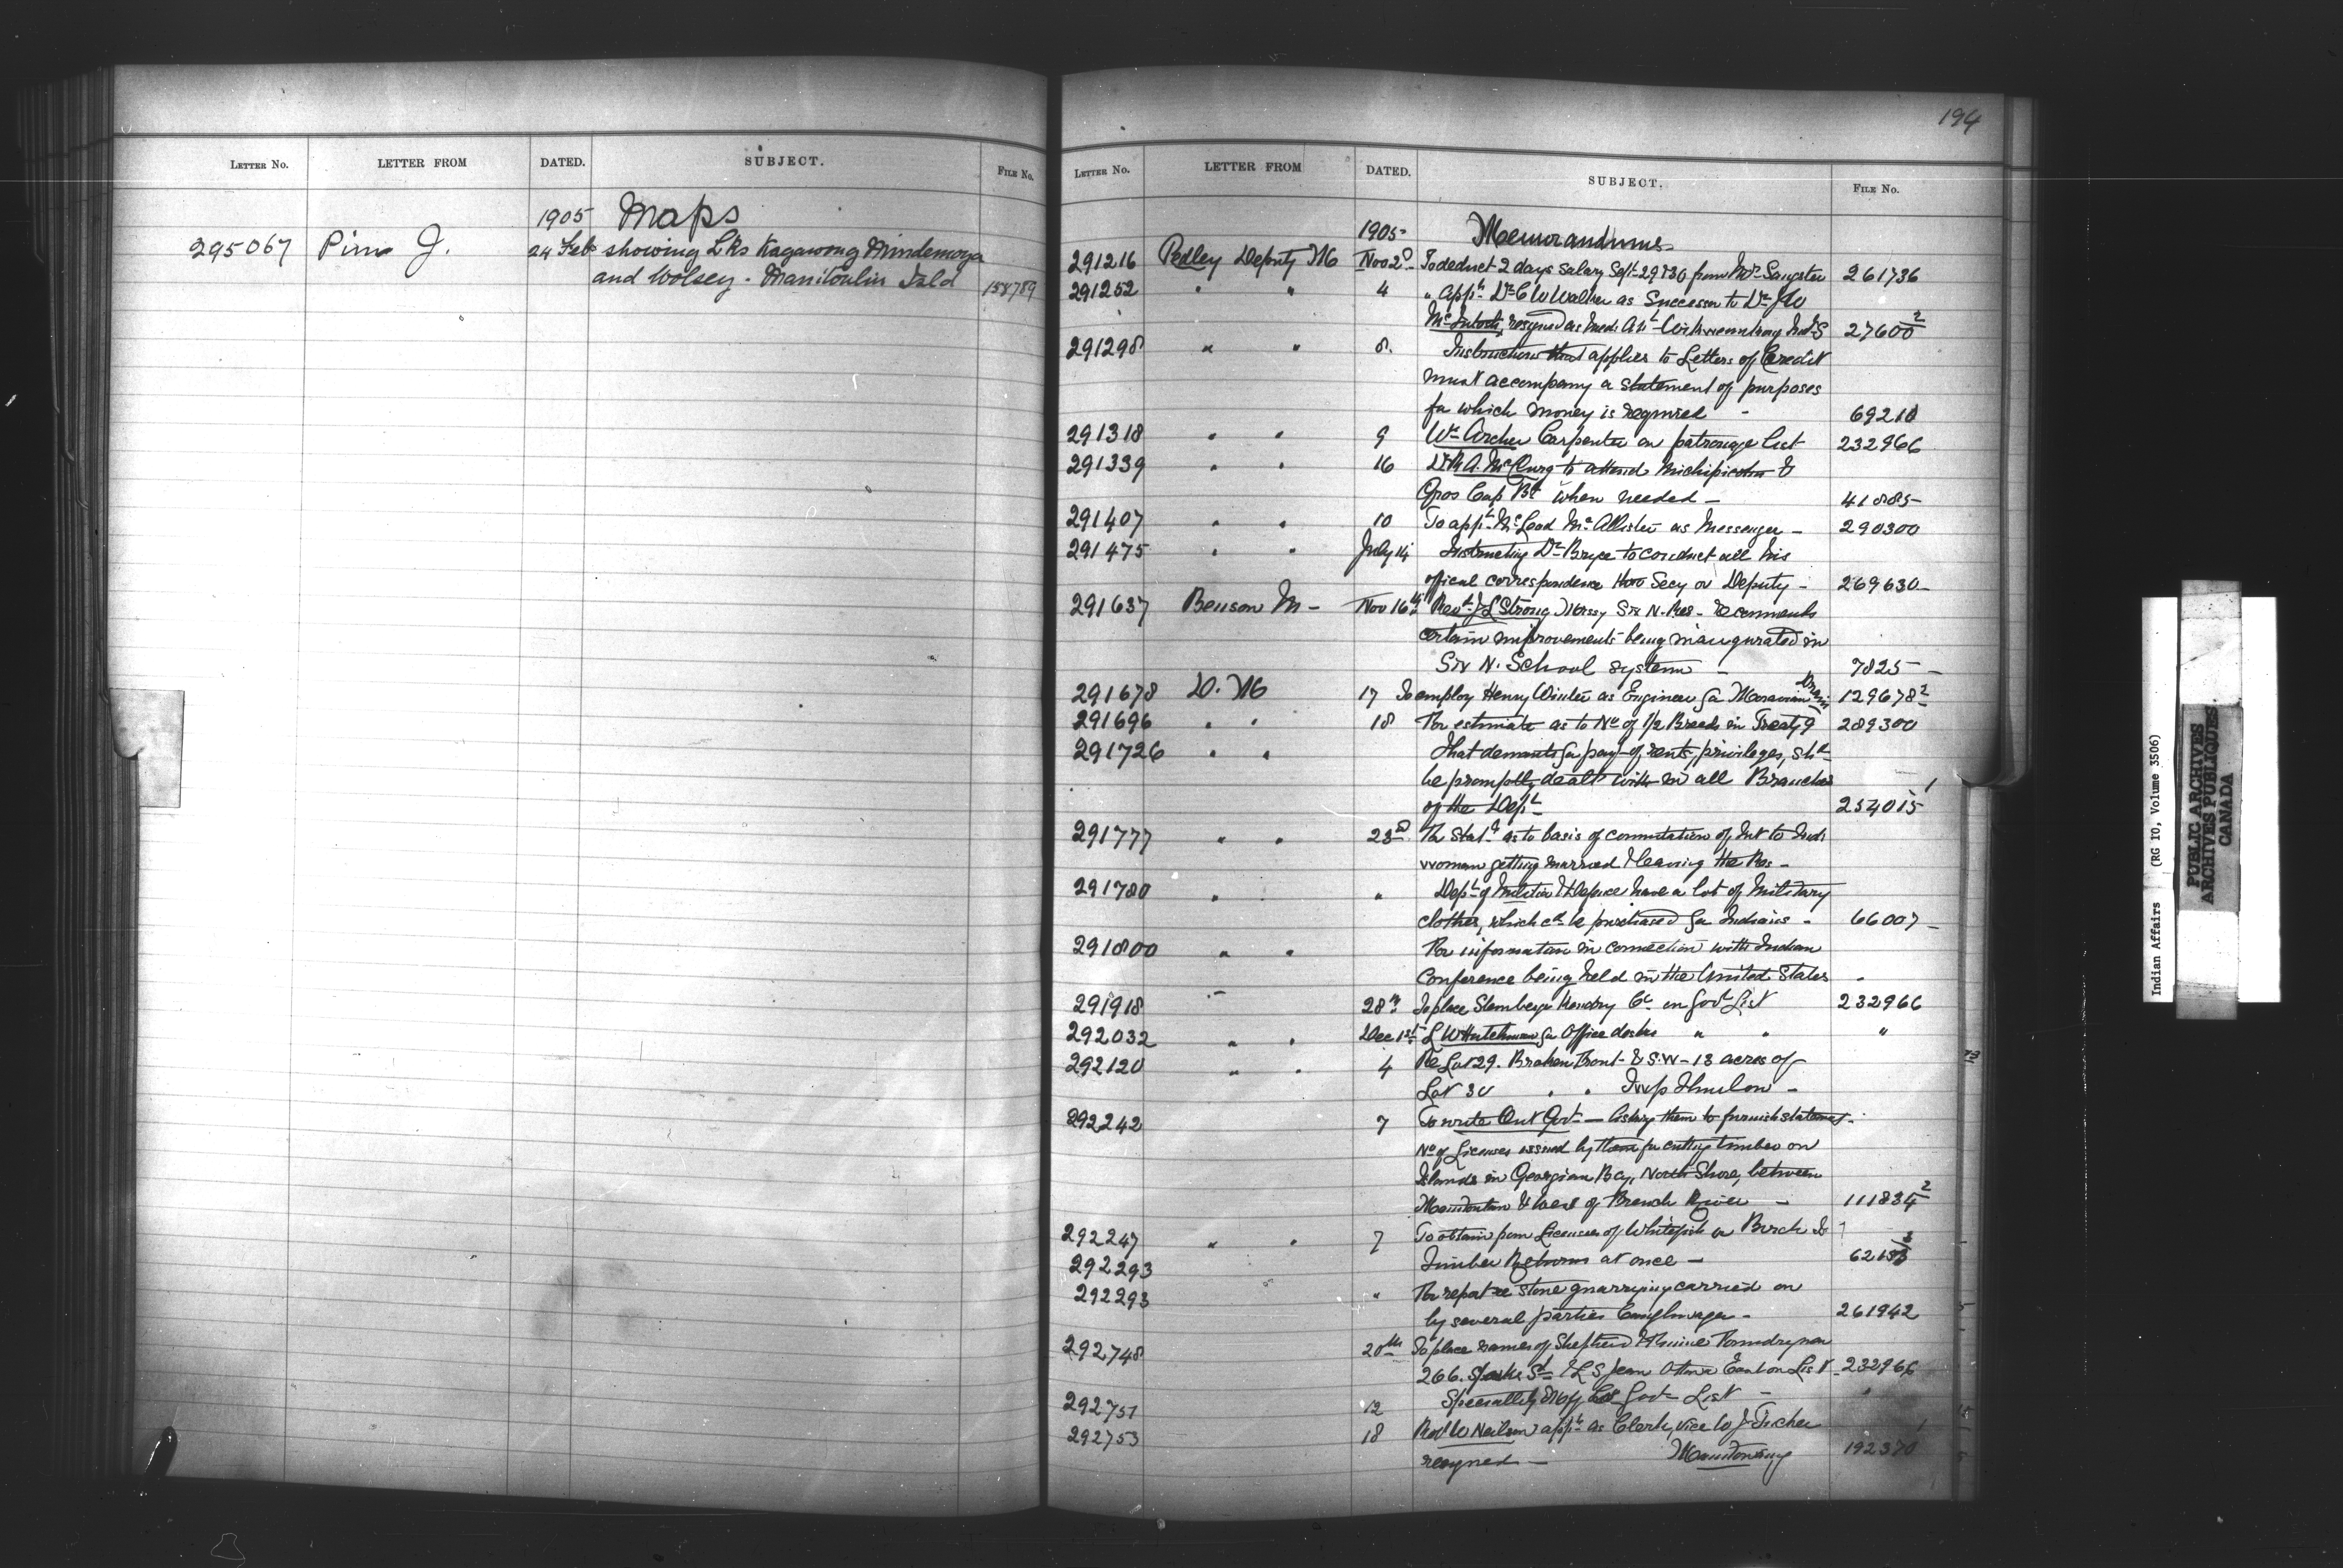 LETTER NO. LETTER FROM DATED. SUBJECT. FILE No.
1905 Maps
295067 Pim J. 24 Feb showing Lks Kagawong Mindemoya
and Wolsey - Manitoulin Isld 158789
194
LETTER NO. LETTER FROM DATED. SUBJECT. FILE No.
1905 - Memorandums
291216 Pedley Deputy M Nov 2d To deduct 2 days salary Sept 29 & 30 from Mr Sangster 261736
291252 " " 4 " appt Dr C W Walker as Successor to Dr J W
McIntosh, resigned as Med. Att Inds 27600 2
291298 " " 8. Instructions that applies to Letters of Credit
must accompany a statement of purposes
for which money is required - 69210
291318 " " 9 Wm Archer Carpenter on patronage list 232966
291339 " " 16 Dr R A. McClurg to attend Michipicoten &
Gros Cap Bd when needed - 41885
291407 " " 10 To appt McLeod McAllister as Messenger - 290300
291475 " " July 14 Instructing Dr Bryce to conduct all his
offical correspondence thro Secy or Deputy - 269630
291637 Benson M - Nov 16th Revd J L Strong Missy Six N. Res - recommends
certain improvements being inaugurated in
Six N. School system - 7825 -
291678 D. M 17 To employ Henry Winter as Engineer for Moravian Drain 129678 2
291696 " " 18 For estimate as to No of 1/2 Breeds in Treaty 9 289300
291726 " " That demands for payt of rents, privileges, shd
be promptly dealt with in all Branches
of the Dept 254015 1
291777 " " 23d For Statt as to basis of commutation of Int to Ind
woman getting married & leaving the Res -
291780 " " Dept of Militia & Defence have a lot of Military
clothes, which cd be purchased for Indians - 66007 -
291800 " " For information in connection with Indian
Conference being held in the United States -
291918 " 28th To place Slemberge Hendry Co on Govt List 232966
292032 " " Dec 1st L W Hutchman for Office desks " " "
292120 " " 4 Re Lot 29. Broken Front - & S.W - 13 acres of
Lot 30 " " Twp Thurlow -
292242 7 To write Ont Govt - asking them to furnish statement -
No of Licenses issued by them for cutting timber on
Islands in Georgian Bay, North Shore, between
Manitoulin & west of French River - 111834 2
292247 " " 7 To obtain from Licensees of Whitefish or Birch Is
292293 Timber Returns at once - 62153
292293 " For report re stone quarrying carried on
by several parties Caughnawaga - 261942
292748 20th To place names of Shepherd &
266. Sparks St & L S Jean Ottawa East on List 232966
292751 12 Specialty Mfg Co Govt List - "
292753 18 Robt W Neilson appt as Clerk, vice W J Tucker
resigned - Manitowaning 192370 1
Indian Affairs (RG 10, Volume 3506)
PUBLIC ARCHIVES
ARCHIVES PUBLIQUES
CANADA